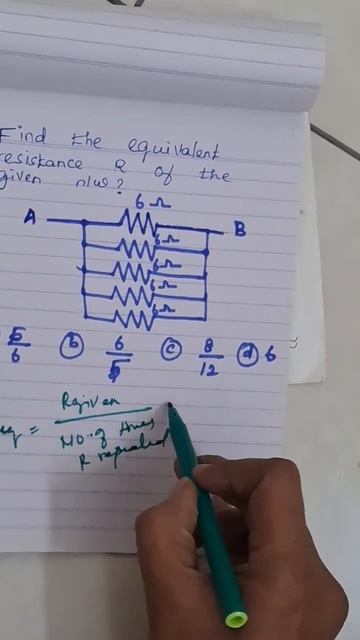 Find the equivalent
resistance R of the
given n/w?
6 Ω
A B
6Ω
6Ω
6Ω
6Ω
5/6 (b) 6/5 (c) 8/12 (d) 6
Rgiven
eq = No. of times
R repeated